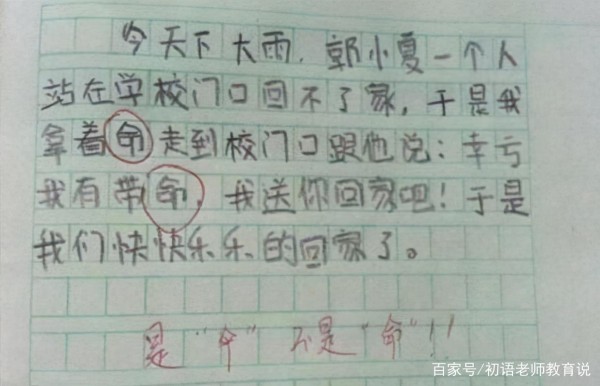 今天下大雨，郭小夏一个人
站在学校门口回不了家，于是我
拿着命走到校门口跟他说：幸亏
我有带命，我送你回家吧！于是
我们快快乐乐的回家了。
是“伞”不是“命”!!
百家号/初语老师教育说